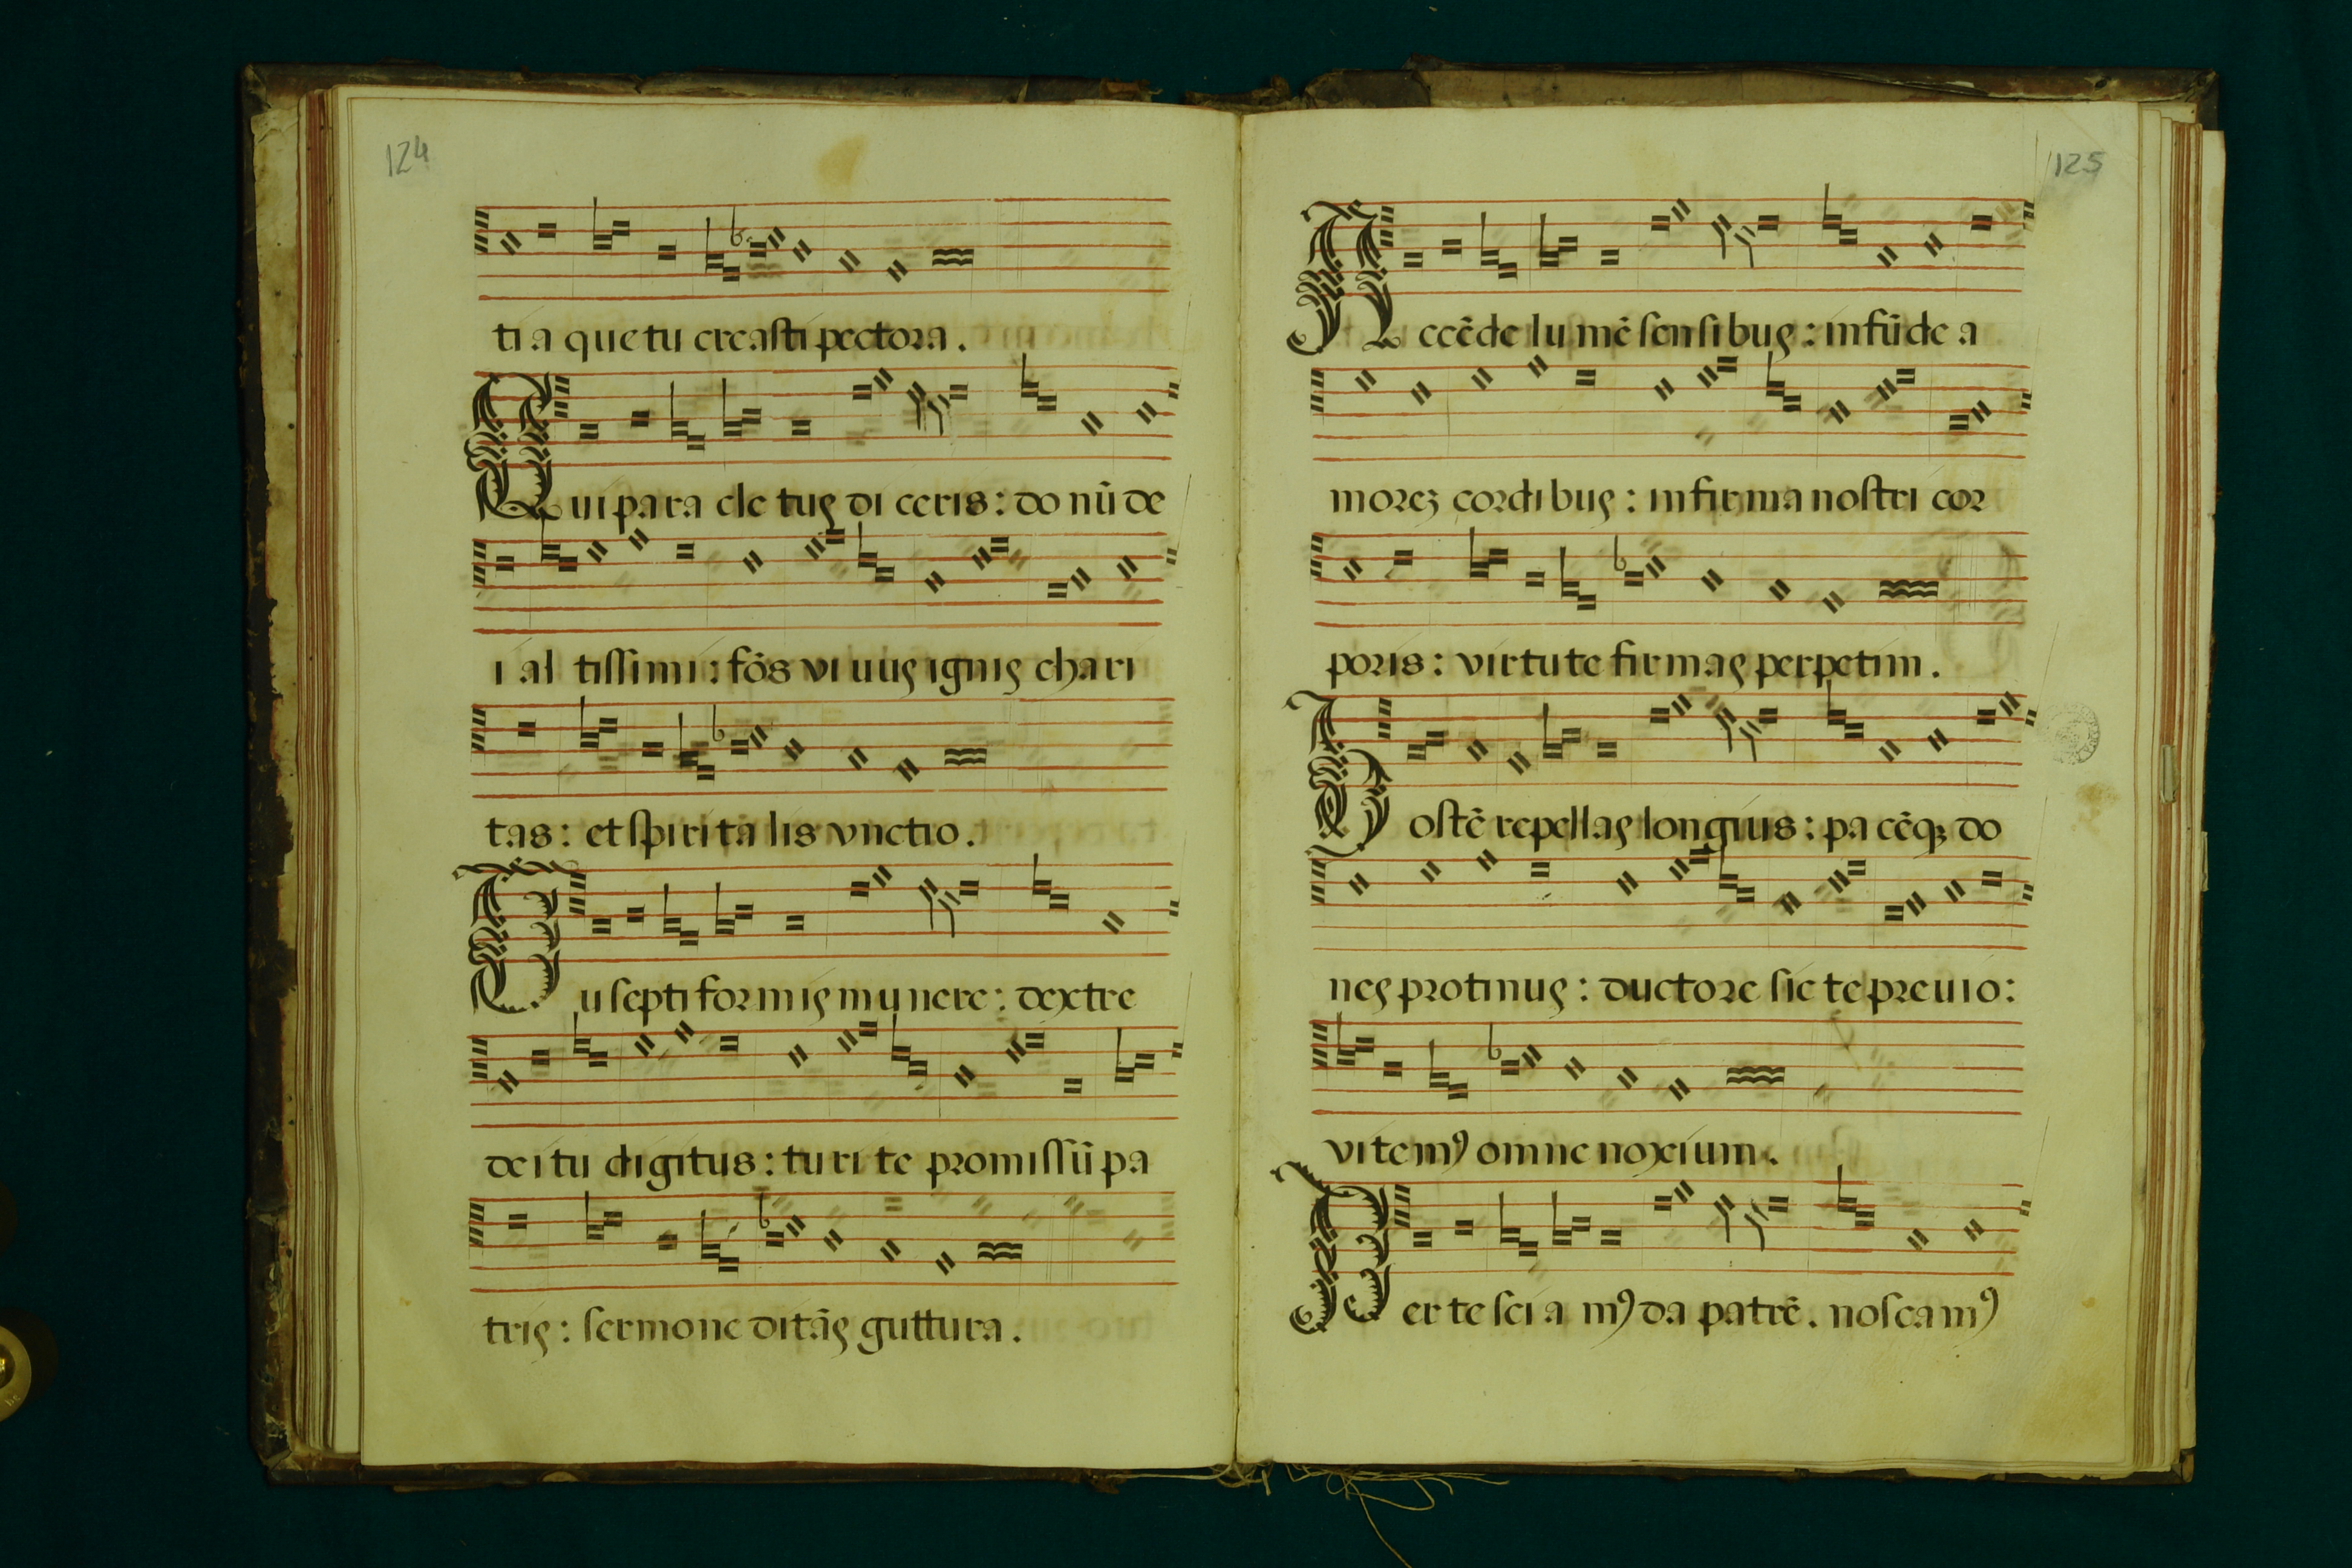 124
ti a que tu creasti pectora.
Qui para cle tus di ceris: do nū de
i al tissimi: fōs vi uus ignis chari
tas: et spiri ta lis vnctio.
Tu septi for mis mu nere: dextre
dei tu digitus: tu ri te promissū pa
tris: sermone ditās guttura.
125
Accēde lu mē sensi bus: infūde a
morez cordi bus: infir ma nostri cor
poris: virtute fir mas perpetim.
Hostē repellas longius: pa cēqꝫ do
nes protinus: ductore sic te preuio:
vi te mꝰ omne noxium.
Per te sci a mꝰ da patrē. nosca mꝰ